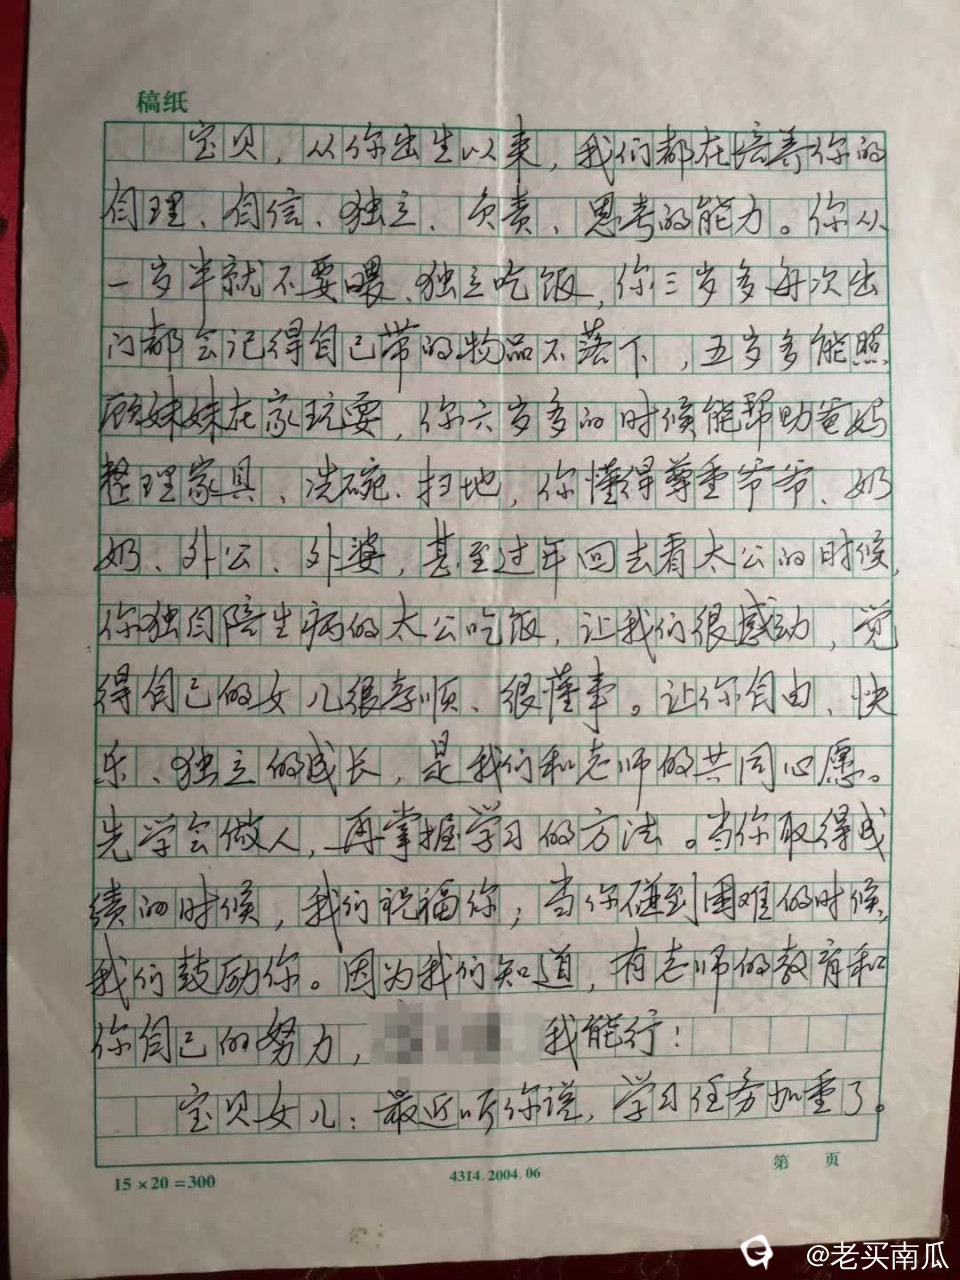 稿纸
宝贝，从你出生以来，我们都在培养你的
自理、自信、独立、负责、思考的能力。你从
一岁半就不要喂、独立吃饭，你三岁多每次出
门都会记得自己带的物品不落下，五岁多能照
顾妹妹在家玩耍，你六岁多的时候能帮助爸妈
整理家具、洗碗、扫地，你懂得尊重爷爷、奶
奶、外公、外婆，甚至过年回去看太公的时候，
你独自陪生病的太公吃饭，让我们很感动，觉
得自己的女儿很孝顺、很懂事。让你自由、快
乐、独立的成长，是我们和老师的共同心愿。
先学会做人，再掌握学习的方法。当你取得成
绩的时候，我们祝福你，当你碰到困难的时候，
我们鼓励你。因为我们知道，有老师的教育和
你自己的努力，我能行！
宝贝女儿：最近听你说，学习任务加重了。
15×20=300
4314.2004.06
第 页
@老买南瓜